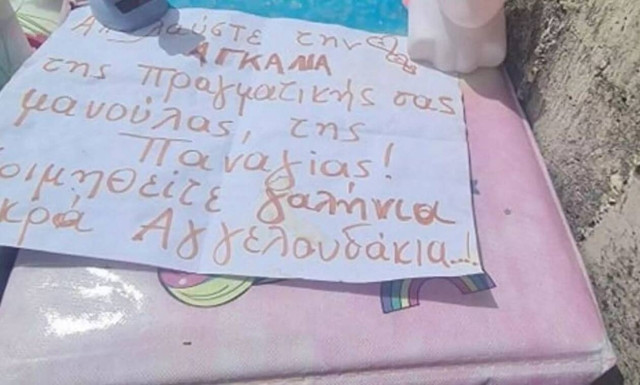 Απολαύστε την
ΑΓΚΑΛΙΑ
της πραγματικής σας
μανούλας, της
Παναγίας!
οιμηθείτε γαλήνια
κρά Αγγελουδάκια...!